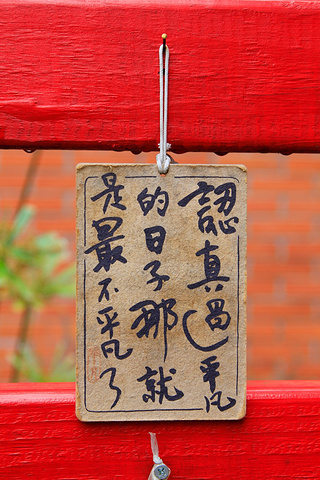 認真過平凡
的日子那就
是最不平凡了